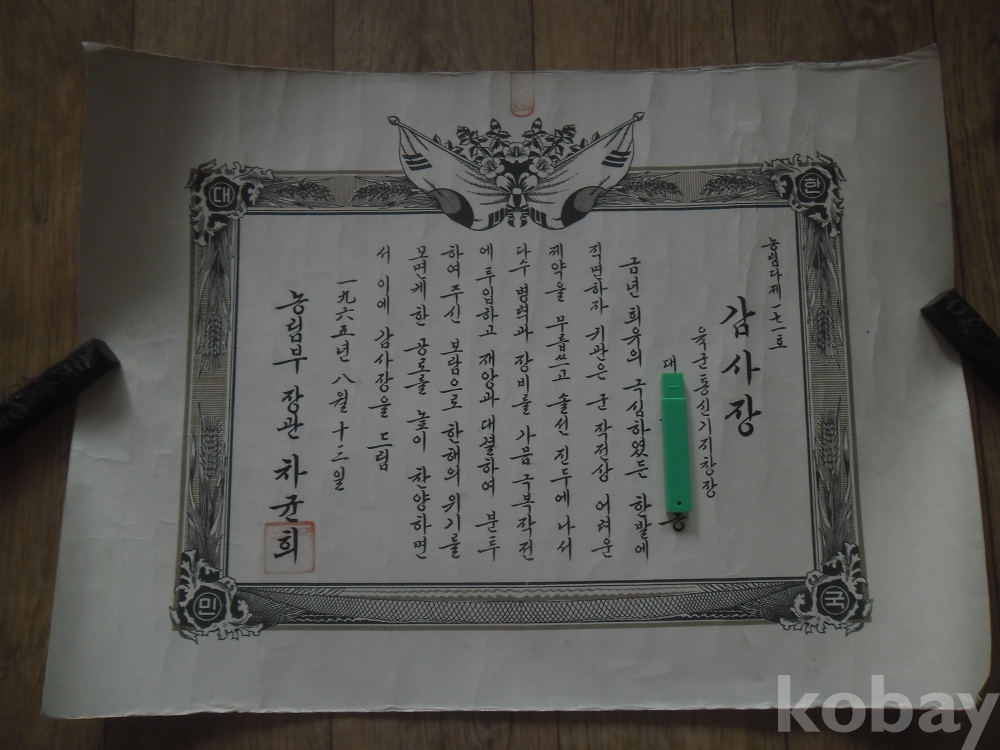 대
한
민
국
농림다제 一七一호
감사장
육군통신기지창장
대
금년 희유의 극심하였든 한발에
직면하자 귀관은 군 작전상 어려운
제약을 무릅쓰고 솔선 진두에 나서
다수 병력과 장비를 가뭄 극복작전
에 투입하고 재앙과 대결하여 분투
하여 주신 보람으로 한해의 위기를
모면케 한 공로를 높이 찬양하면
서 이에 감사장을 드림
一九六五년 八월 十三일
농림부 장관 차균희
kobay